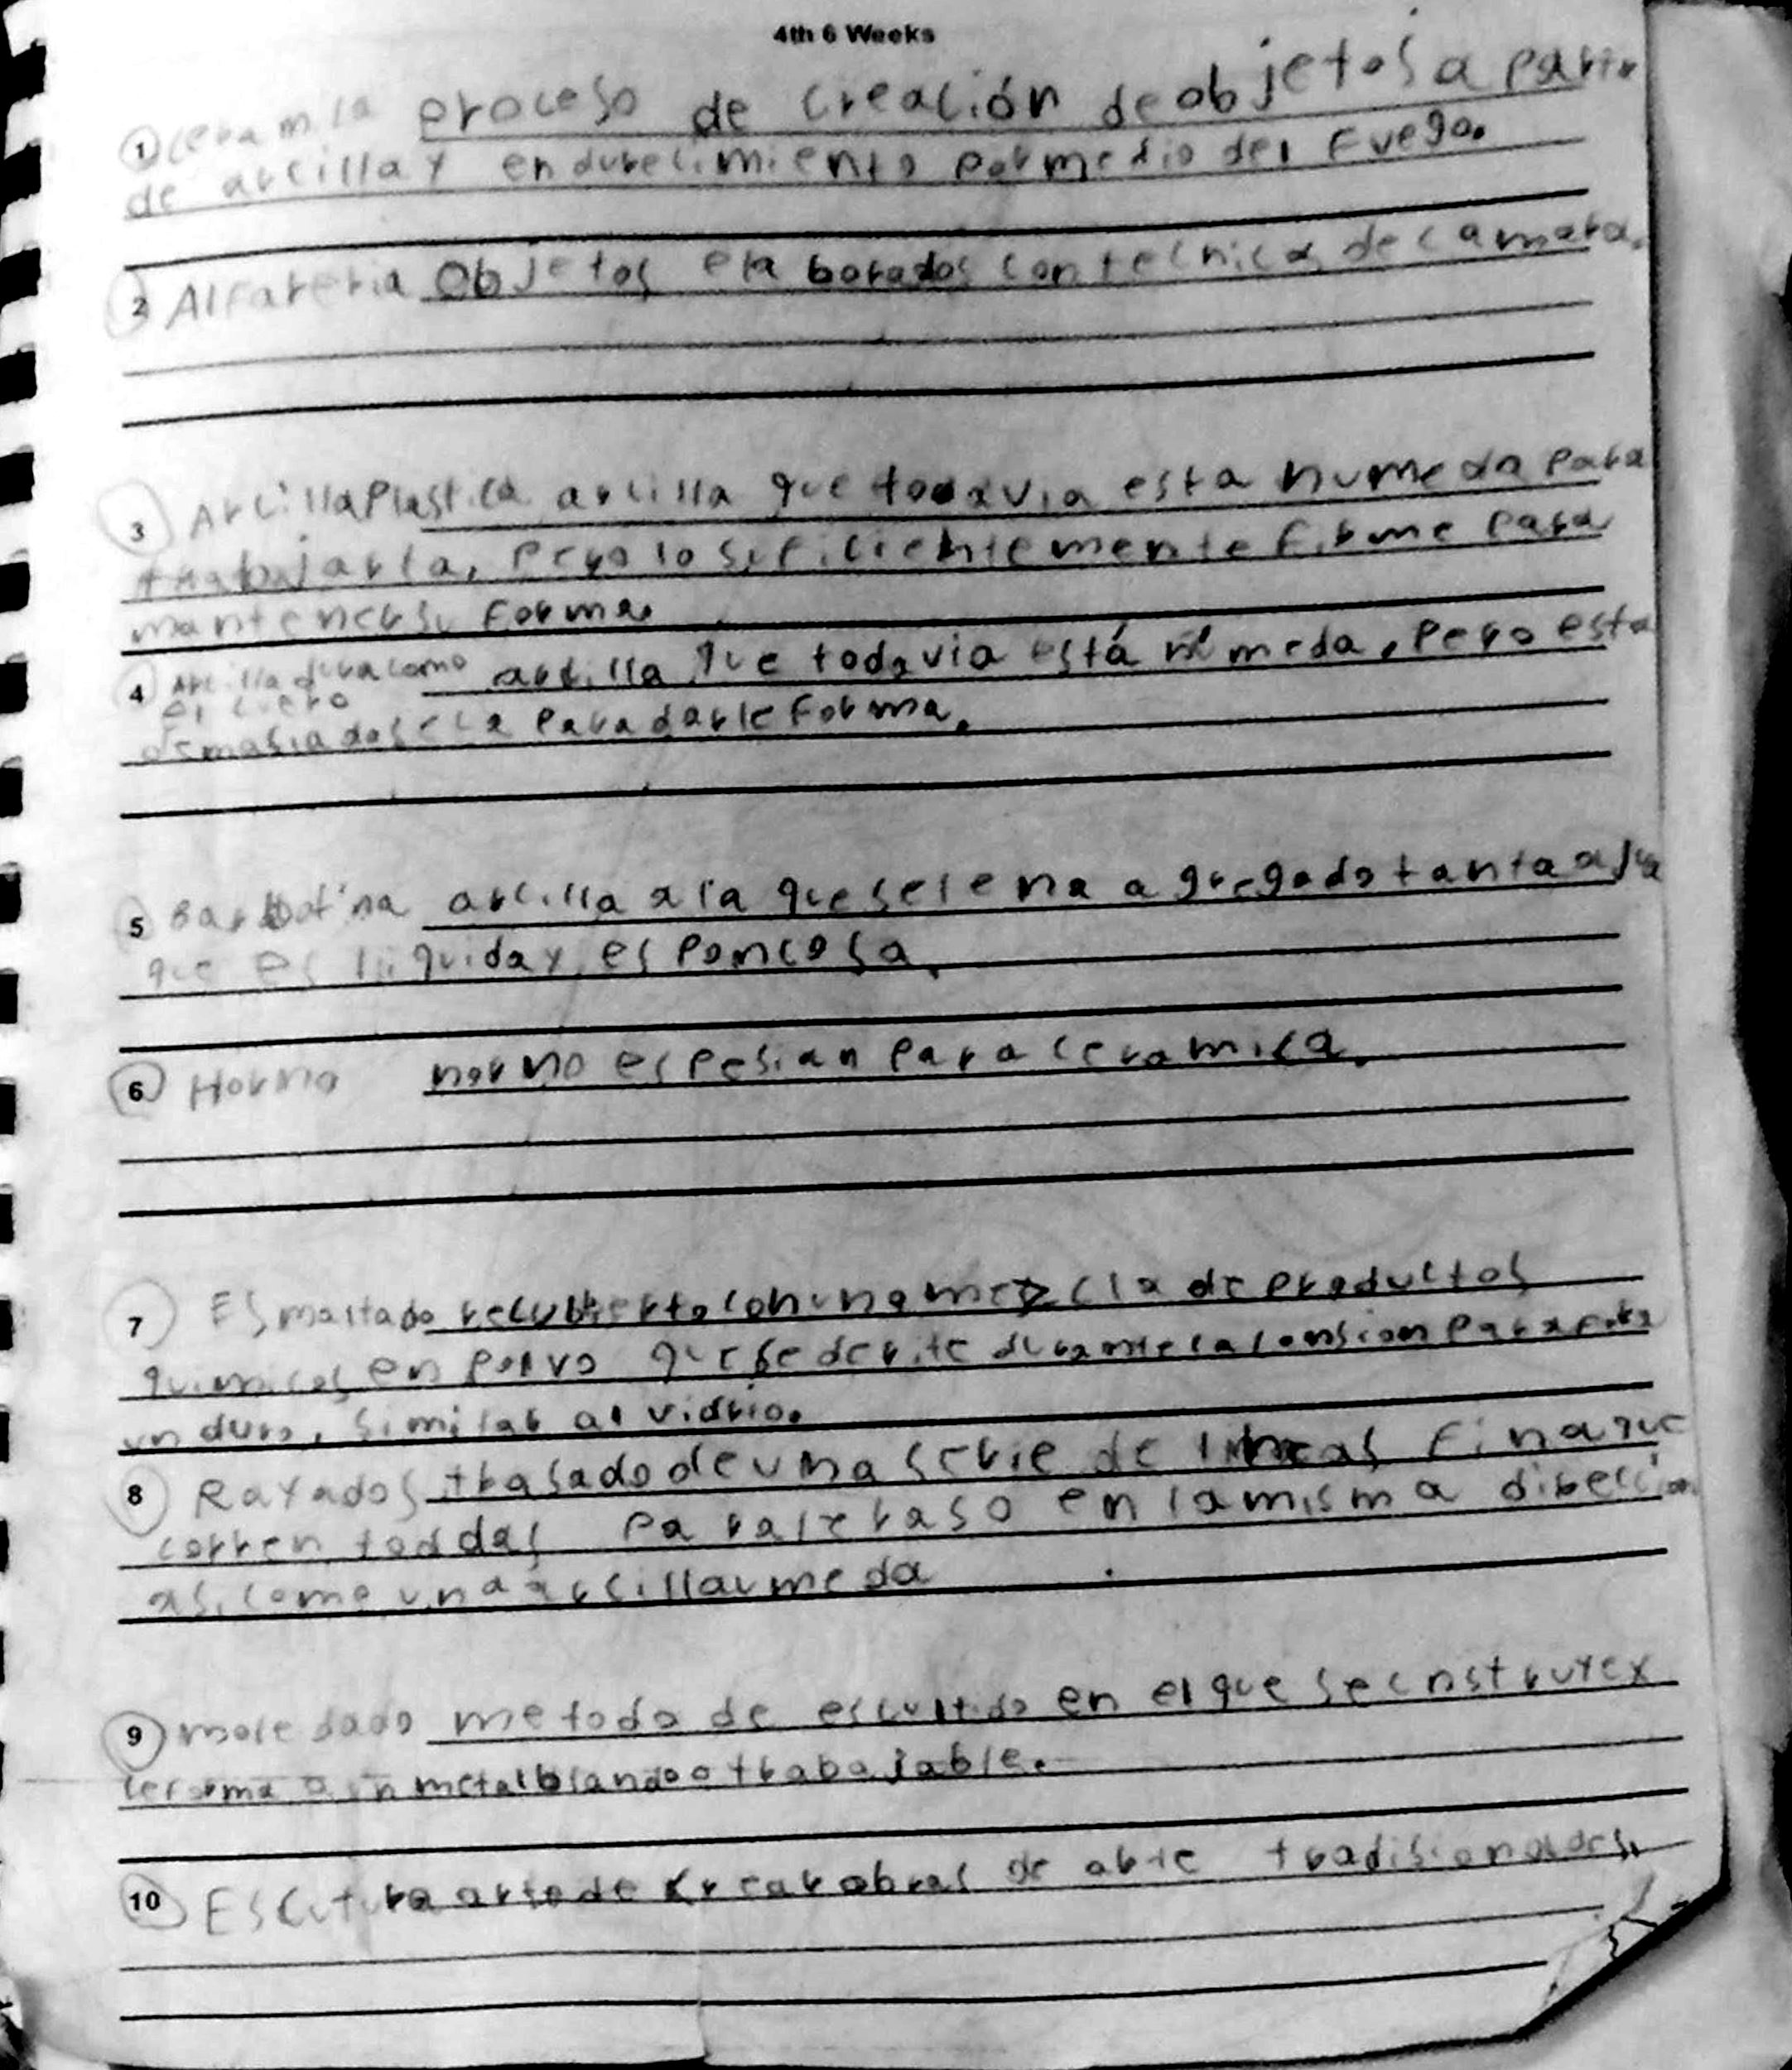 4th 6 Weeks
1 ceramica proceso de creación de objetos a partir
de arcilla y endurecimiento por medio del Fuego.
2 Alfareria Objetos elaborados con tecnica de camara.
3 Arcilla Plastica arcilla que todavia esta humeda para
trabajarla, pero lo sificientemente firme para
mantener su forma.
4 Arcilla dura como arcilla que todavia está humeda, Pero esta
el cuero
demasiado seca para darle forma.
5 Barbotina arcilla a la que se le ha agregado tanta agua
que es liquida y espomcosa.
6 Horno horno espesian para ceramica.
7 Esmaltado recubierto con una mezcla de productos
quimicos en polvo que se derite durante la para
un duro, similar al vidrio.
8 Rayados trasado de una serie de lineas fina que
corren toddas en la misma direccion
asi como una arcilla umeda
9 metodo de escultido en el que se cnstruyex
a un metal blando o trabajable.
10 Escutura arte de crear obras de arte tradisionales.